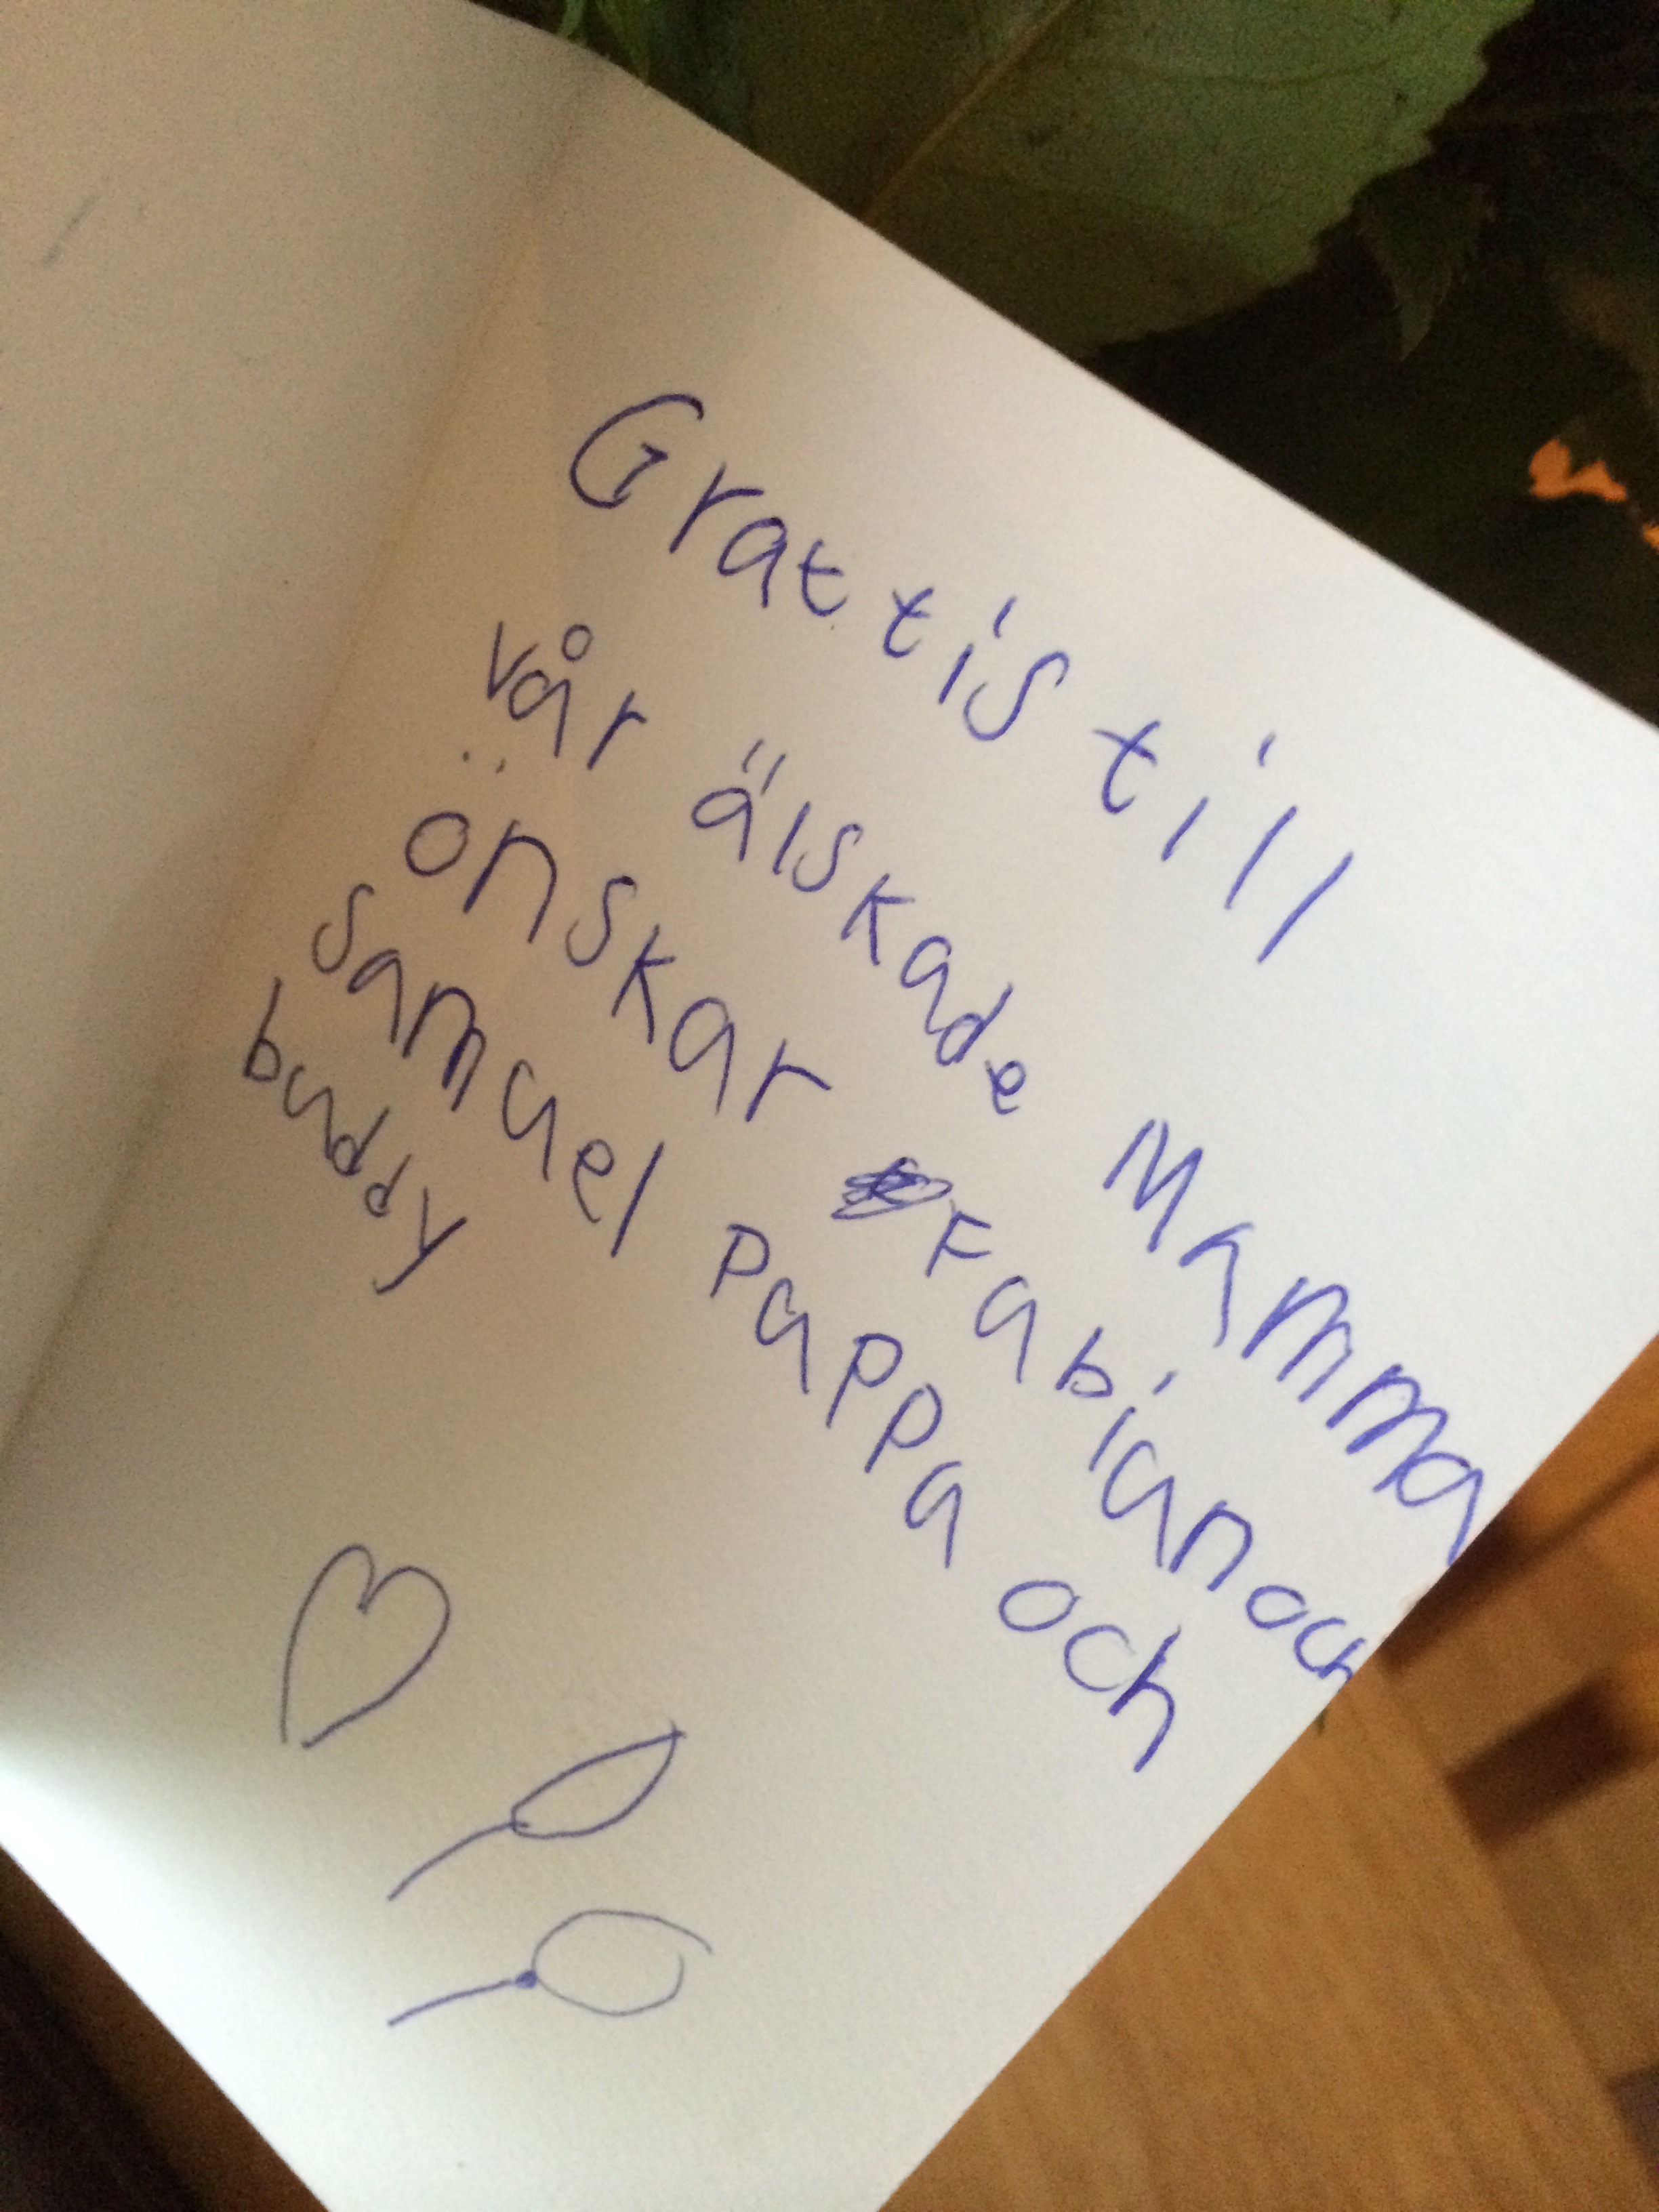 Grattis till
vår älskade Mamma
önskar Fabian och
samuel pappa och
buddy